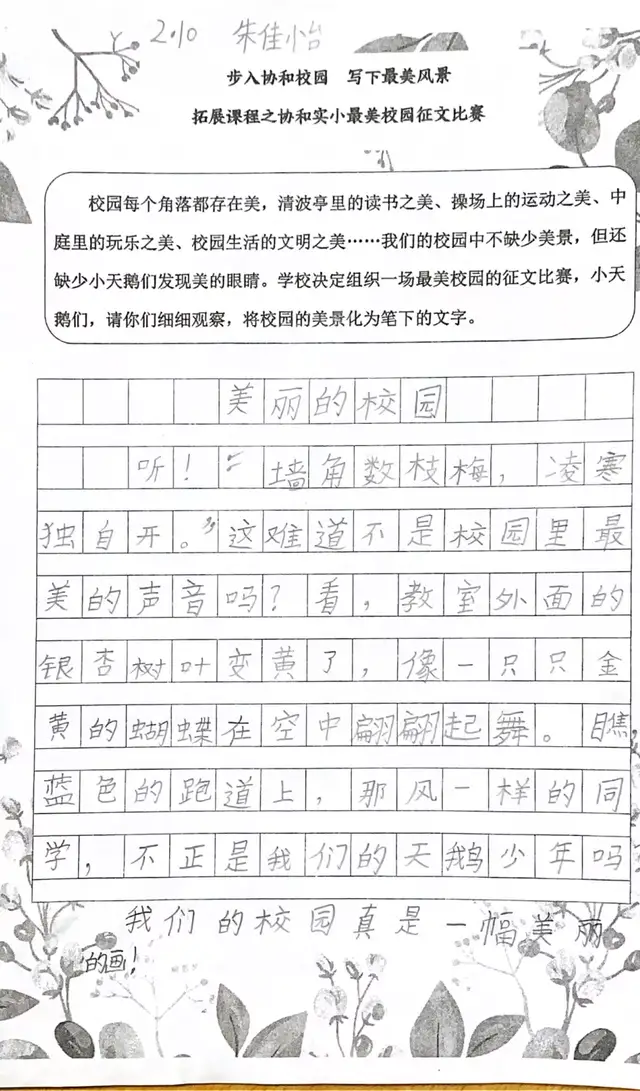 2.10 朱佳小怡
步入协和校园 写下最美风景
拓展课程之协和实小最美校园征文比赛
校园每个角落都存在美，清波亭里的读书之美、操场上的运动之美、中
庭里的玩乐之美、校园生活的文明之美……我们的校园中不缺少美景，但还
缺少小天鹅们发现美的眼睛。学校决定组织一场最美校园的征文比赛，小天
鹅们，请你们细细观察，将校园的美景化为笔下的文字。
美丽的校园
听！“墙角数枝梅，凌寒
独自开。”这难道不是校园里最
美的声音吗？看，教室外面的
银杏树叶变黄了，像一只只金
黄的蝴蝶在空中翩翩起舞。瞧
蓝色的跑道上，那风一样的同
学，不正是我们的天鹅少年吗
我们的校园真是一幅美丽
的画！